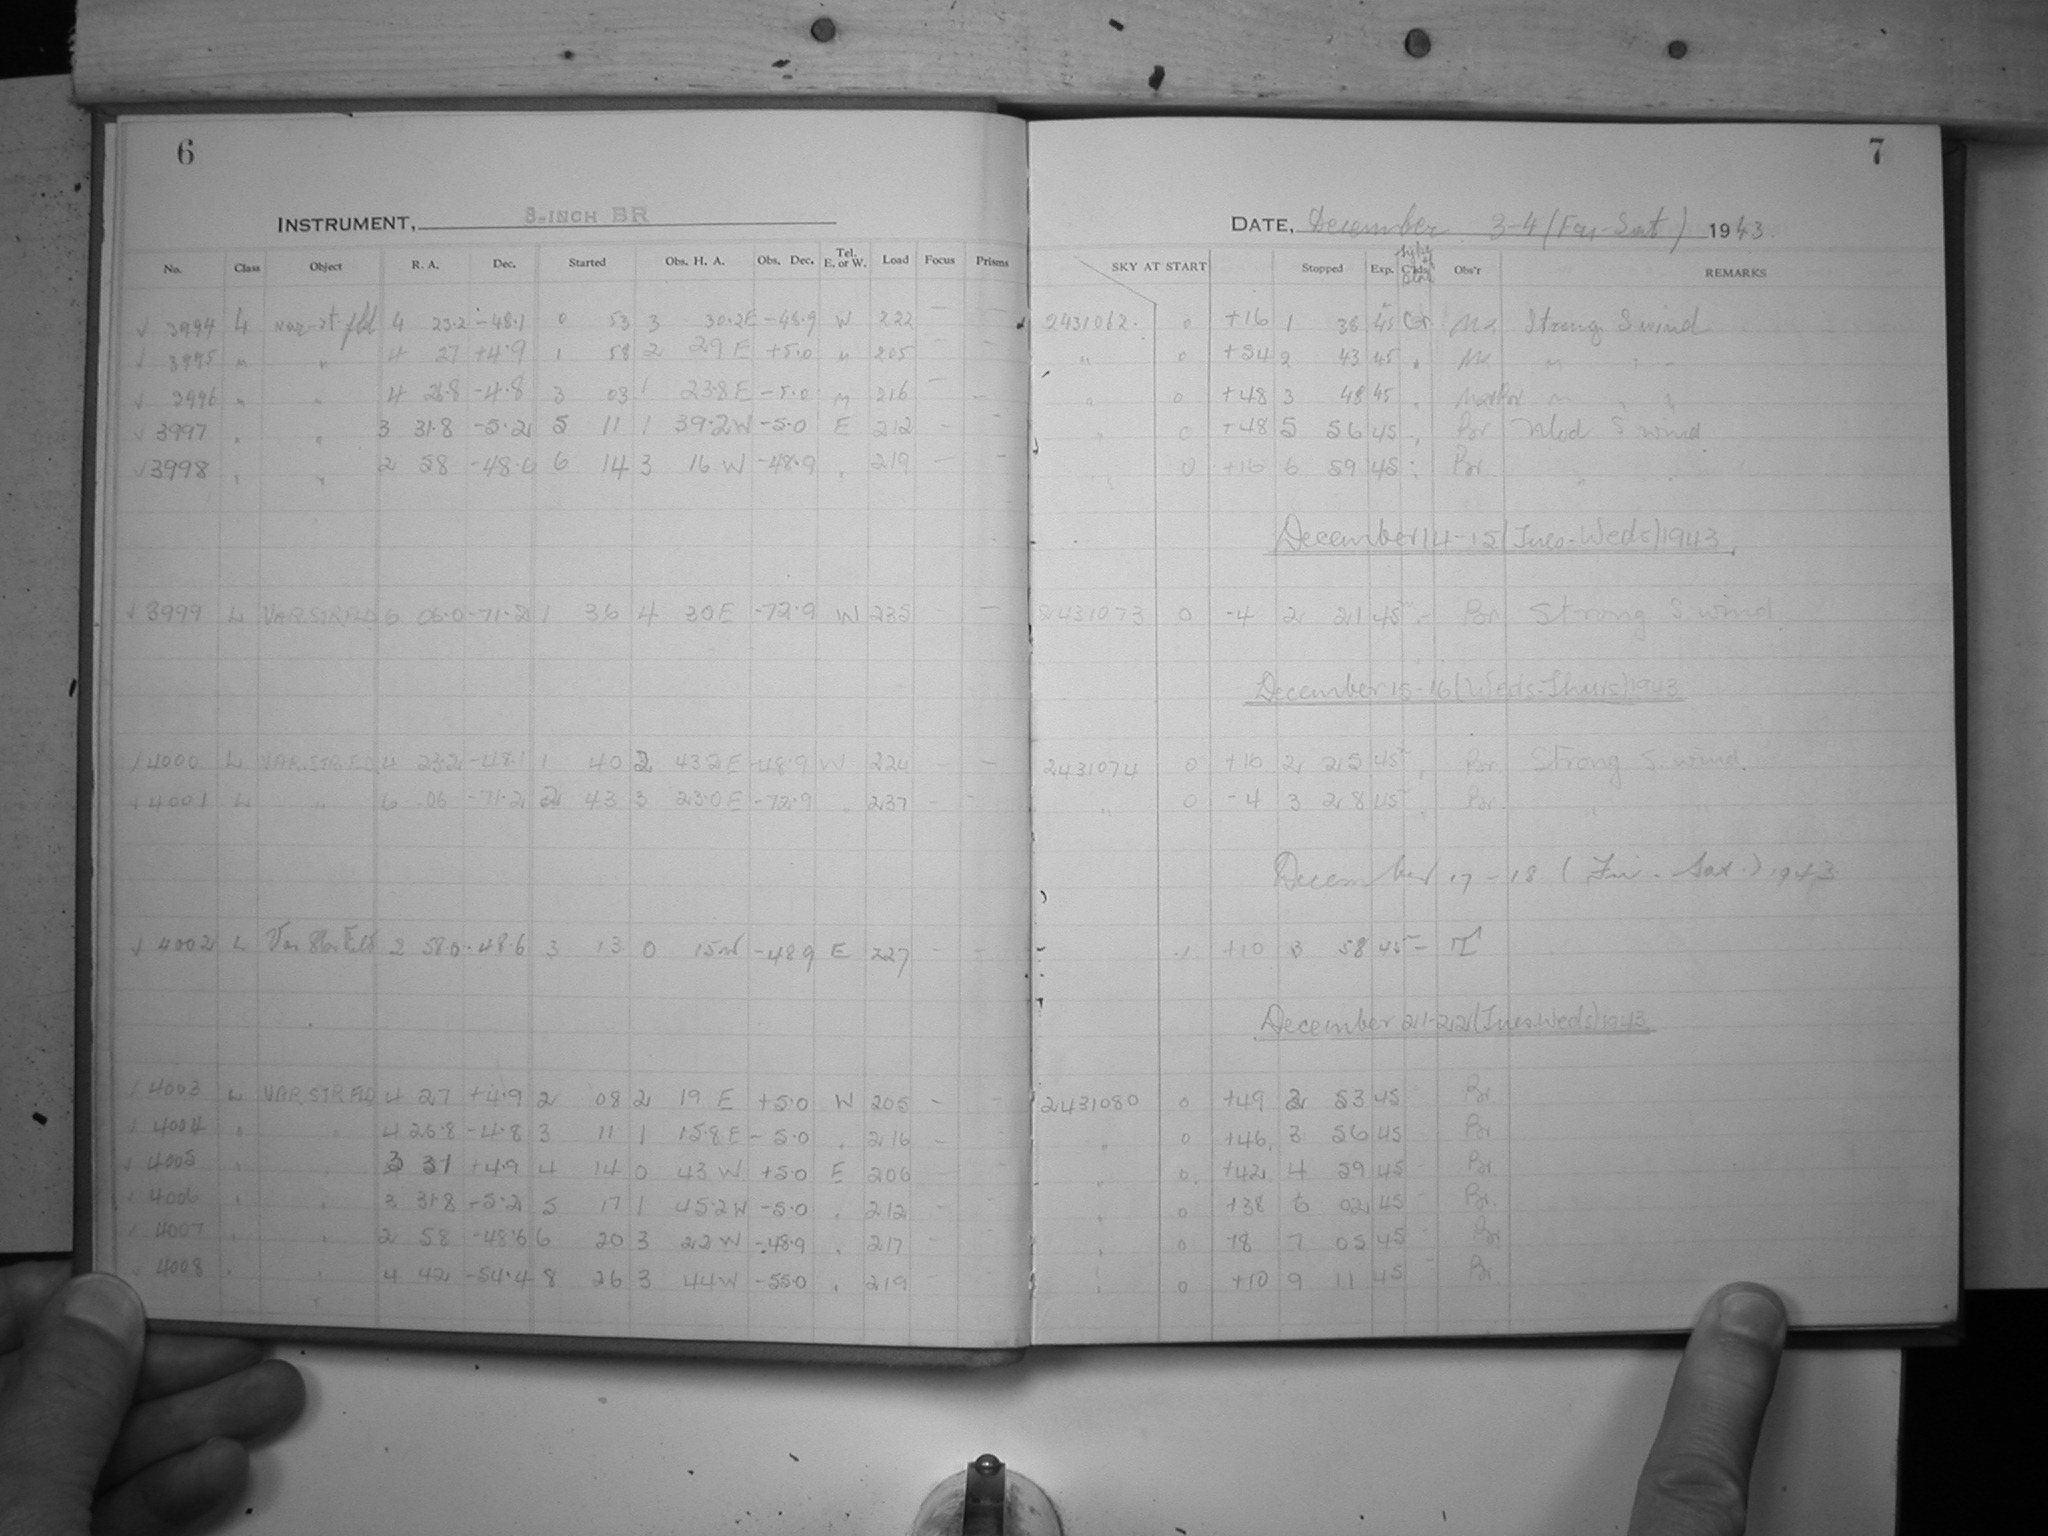 6
INSTRUMENT, 8-INCH BR
No. Class Object R. A. Dec. Started Obs. H. A. Obs. Dec. Tel. E. or W. Load Focus Prisms
√ 3994 L var-st fld 4 23.2 -48.1 0 53 3 30.2E -48.9 W 222 — —
√ 3995 " " 4 27 +4.9 1 58 2 29 E +5.0 " 205 — —
√ 3996 " " 4 26.8 -4.8 3 03 1 23.8E -5.0 " 216 — —
√ 3997 " " 3 31.8 -5.2 5 11 1 39.2W -5.0 E 212 - -
√ 3998 " " 2 58 -48.6 6 14 3 16 W -48.9 " 219 - -
√ 3999 L VAR.STR.FLD 6 06.0 -71.2 1 36 4 30E -72.9 W 235 - -
√ 4000 L VAR.STR.FLD 4 23.2 -48.1 1 40 2 43.2E -48.9 W 224 - -
√ 4001 L " 6 06 -71.2 2 43 3 23.0E -72.9 " 237 - -
√ 4002 L Var Star Field 2 58.0 -48.6 3 13 0 15W -48.9 E 227 - -
√ 4003 L VAR.STR.FLD 4 27 +4.9 2 08 2 19 E +5.0 W 205 - -
√ 4004 " " 4 26.8 -4.8 3 11 1 15.8E -5.0 " 216 - -
√ 4005 " " 3 31 +4.9 4 14 0 43 W +5.0 E 206 - -
√ 4006 " " 3 31.8 -5.2 5 17 1 45.2W -5.0 " 212 - -
√ 4007 " " 2 58 -48.6 6 20 3 22 W -48.9 " 217 - -
√ 4008 " " 4 42 -54.4 8 26 3 44W -55.0 " 219 - -
7
DATE, December 3-4 (Fri-Sat) 1943
SKY AT START Stopped Exp. Obs'r REMARKS
2431062. 0 +16 1 38 45 Cr Ma Strong S wind
" 0 +54 2 43 45 " Ma " " "
" 0 +48 3 48 45 " " " "
" 0 +48 5 56 45 " Br Mod S wind
" 0 +16 6 59 45 " Br " "
December 14-15 (Tues-Weds) 1943.
2431073 0 -4 2 21 45 - Br Strong S. wind
December 15-16 (Weds-Thurs) 1943
2431074 0 +16 2 25 45 " Br Strong S. wind.
" 0 -4 3 28 45 " Br " "
December 17-18 (Fri - Sat.) 1943
-1 +10 3 58 45 -
December 21-22 (Tues-Weds) 1943.
2431080 0 +49 2 53 45 Br
" 0 +46 3 56 45 Br
" 0 +42 4 59 45 Br
" 0 +38 6 02 45 Br.
" 0 +8 7 05 45 Br
" 0 +10 9 11 45 Br